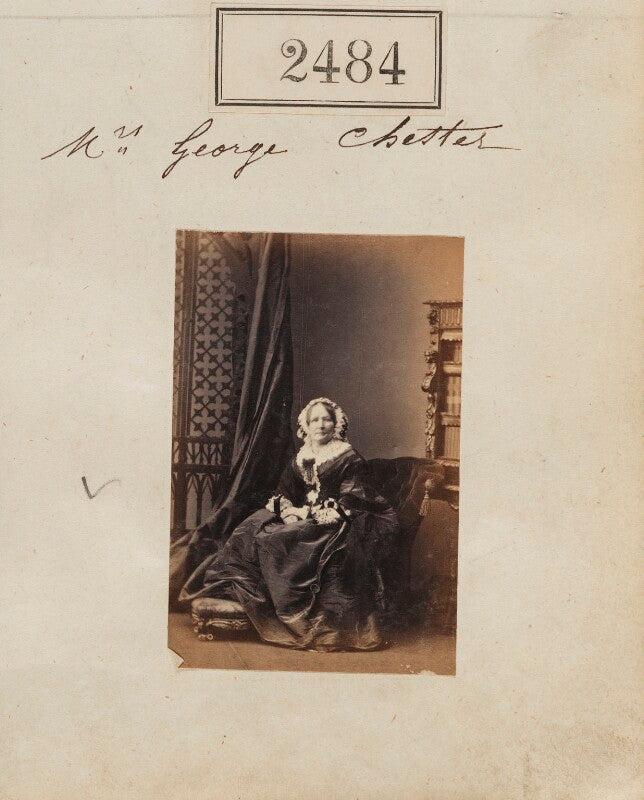 2484
Mrs George Chester